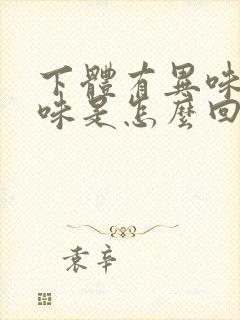 下體有異味
味是怎麼回
袁辛